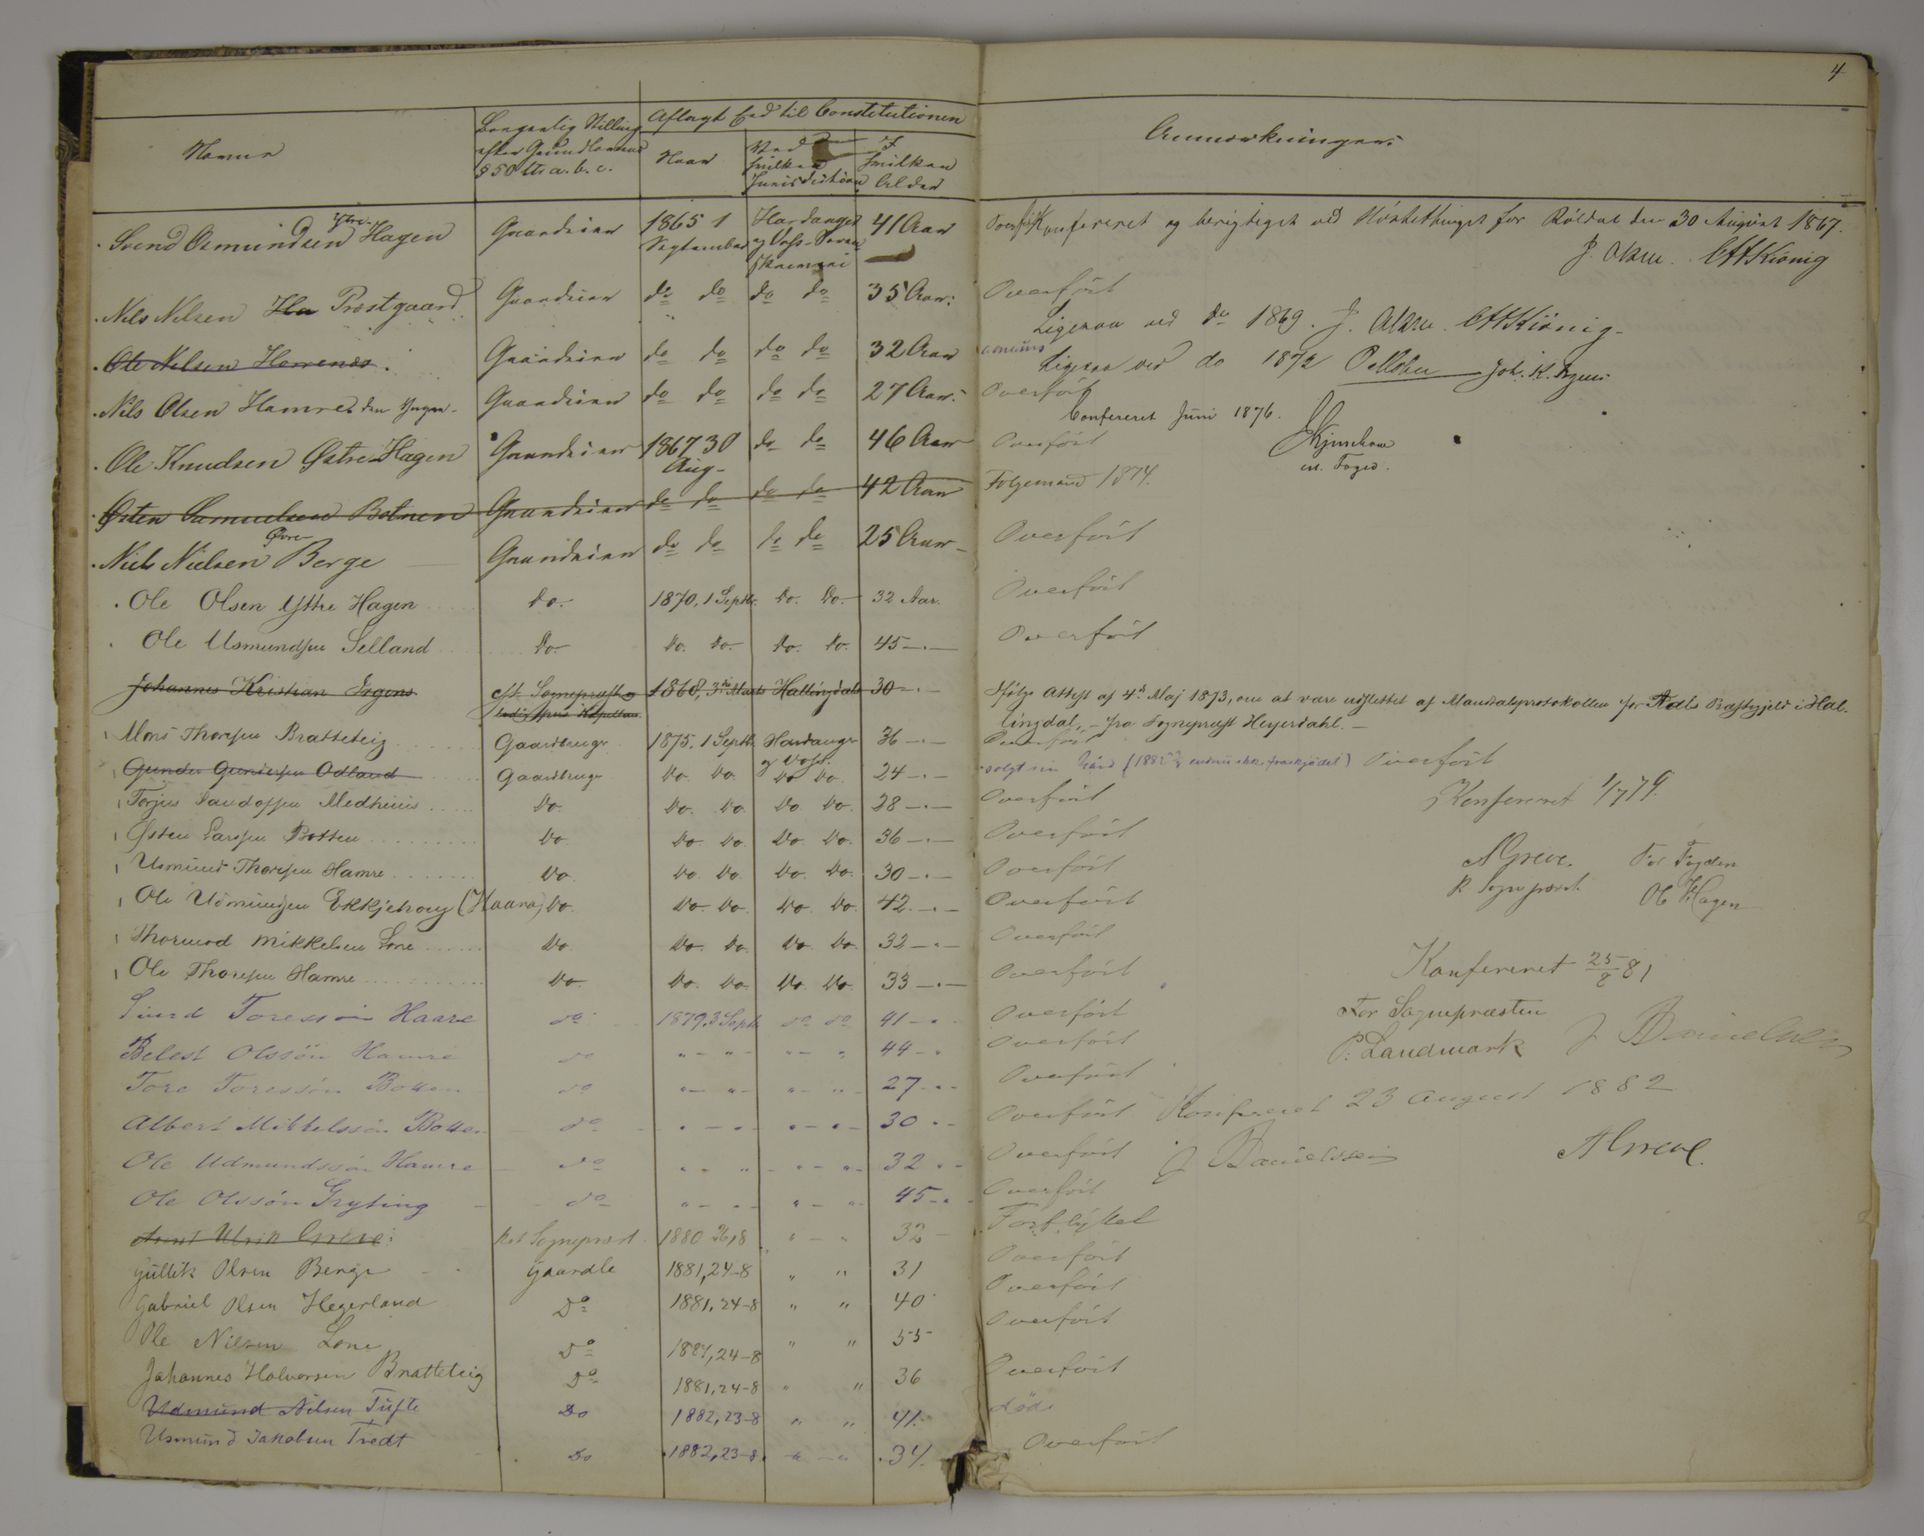 4
Navne
Borgerlig Stilling efter Grundlovens § 50 litr a. b. c.
Aflagt Eed til Constitutionen
Naar
Ved hvilken Jurisdiktion
I hvilken Alder
Anmærkninger
Svend Osmundsen Ytre Hagen Gaardeier 1865 1 September Hardanger og Voss Sorenskriveri 41 Aar Overført Konfereret og berigtiget ved Høstethinget for Røldal den 30 August 1867.
Nils Nilsen Ha Prestgaard Gaardeier do do do do 35 Aar Overført
Ligesaa ved do 1869.
Ole Nilsen Horrenes Gaardeier do do do do 32 Aar
Ligesaa ved do 1872
Nils Olsen Hamre den Yngre Gaardeier do do do do 27 Aar Overført
Confereret Juni 1876.
Ole Knudsen Østre Hagen Gaardeier 1867 30 Aug do do 46 Aar Overført
cst. Foged.
Østen Samuelsen Botnen Gaardeier do do do do 42 Aar Folgemand 1874.
Niels Nielsen Øvre Berge Gaardeier do do do do 25 Aar Overført
Ole Olsen Yttre Hagen do. 1870, 1 Septbr. Do. Do. 32 Aar. Overført
Ole Usmundsen Selland Do. Do. Do. Do. Do. 45 Overført
Johannes Kristian Irgens cst. Sogneprest 1868, 3die Marts Hallingdal 30 Ifølge Attest af 4de Maj 1873, om at være udslettet af Mandtalsprotokollen for Aals Præstegjeld i Hallingdal, fra Sogneprest Heyerdahl.
Mons Thorsen Bratteteig Gaardbruger 1875, 1 Septb. Hardanger og Voss. 36 Overført
Gunder Gundersen Odland Gaardbruger Do. Do. Do. Do. 24 solgt sin Gård Overført
Torjus Do. Do. Do. Do. Do. 28 Overført
Konfereret 1/7 79.
Østen Larssen Botten Do. Do. Do. Do. Do. 36 Overført
Usmund Thoresen Hamre Do. Do. Do. Do. Do. 30 Overført
A Greve. For Fogden
Ole Usmundsen Ekkjehoug (Haara) Do. Do. Do. Do. Do. 42 Overført
R Sognepræst Ol. Hagen
Thormod Mikkelsen Lone Do. Do. Do. Do. Do. 32 Overført
Ole Thoresen Hamre Do. Do. Do. Do. Do. 33 Overført
Konfereret 25/8 81
Sivrd Toresson Haare do 1879, 3 Septb. do do 41 Overført
For Sognepræsten
Belest Olssøn Hamre do " " " " 44 Overført
P. Landmark J Danielsen
Tore Toressøn Botten do " " " " 27 Overført
Albert Mikkelssøn Botten do " " " " 30 Overført Konfereret 23 August 1882
Ole Udmundssøn Hamre do " " " " 32 Overført
J Danielssen A Greve.
Ole Olssøn Gryting do " " " " 45 Overført
Arnt Ulrik Greve: Res Sognepræst 1880 26/8 " " 32 Forflyttet
Gullik Olsen Berge Gaardbr 1881, 24-8 " " 31 Overført
Gabriel Olsen Hegerland Do 1881, 24-8 " " 40 Overført
Ole Nilsen Lone Do 1881, 24-8 " " 55 Overført
Johannes Halvorsen Bratteteig Do 1881, 24-8 " " 36 Overført
Udmund Nilsen Tufte Do 1882, 23-8 " " 41. død
Usmund Jakobsen Tredt Do 1882, 23-8. " " 34. Overført